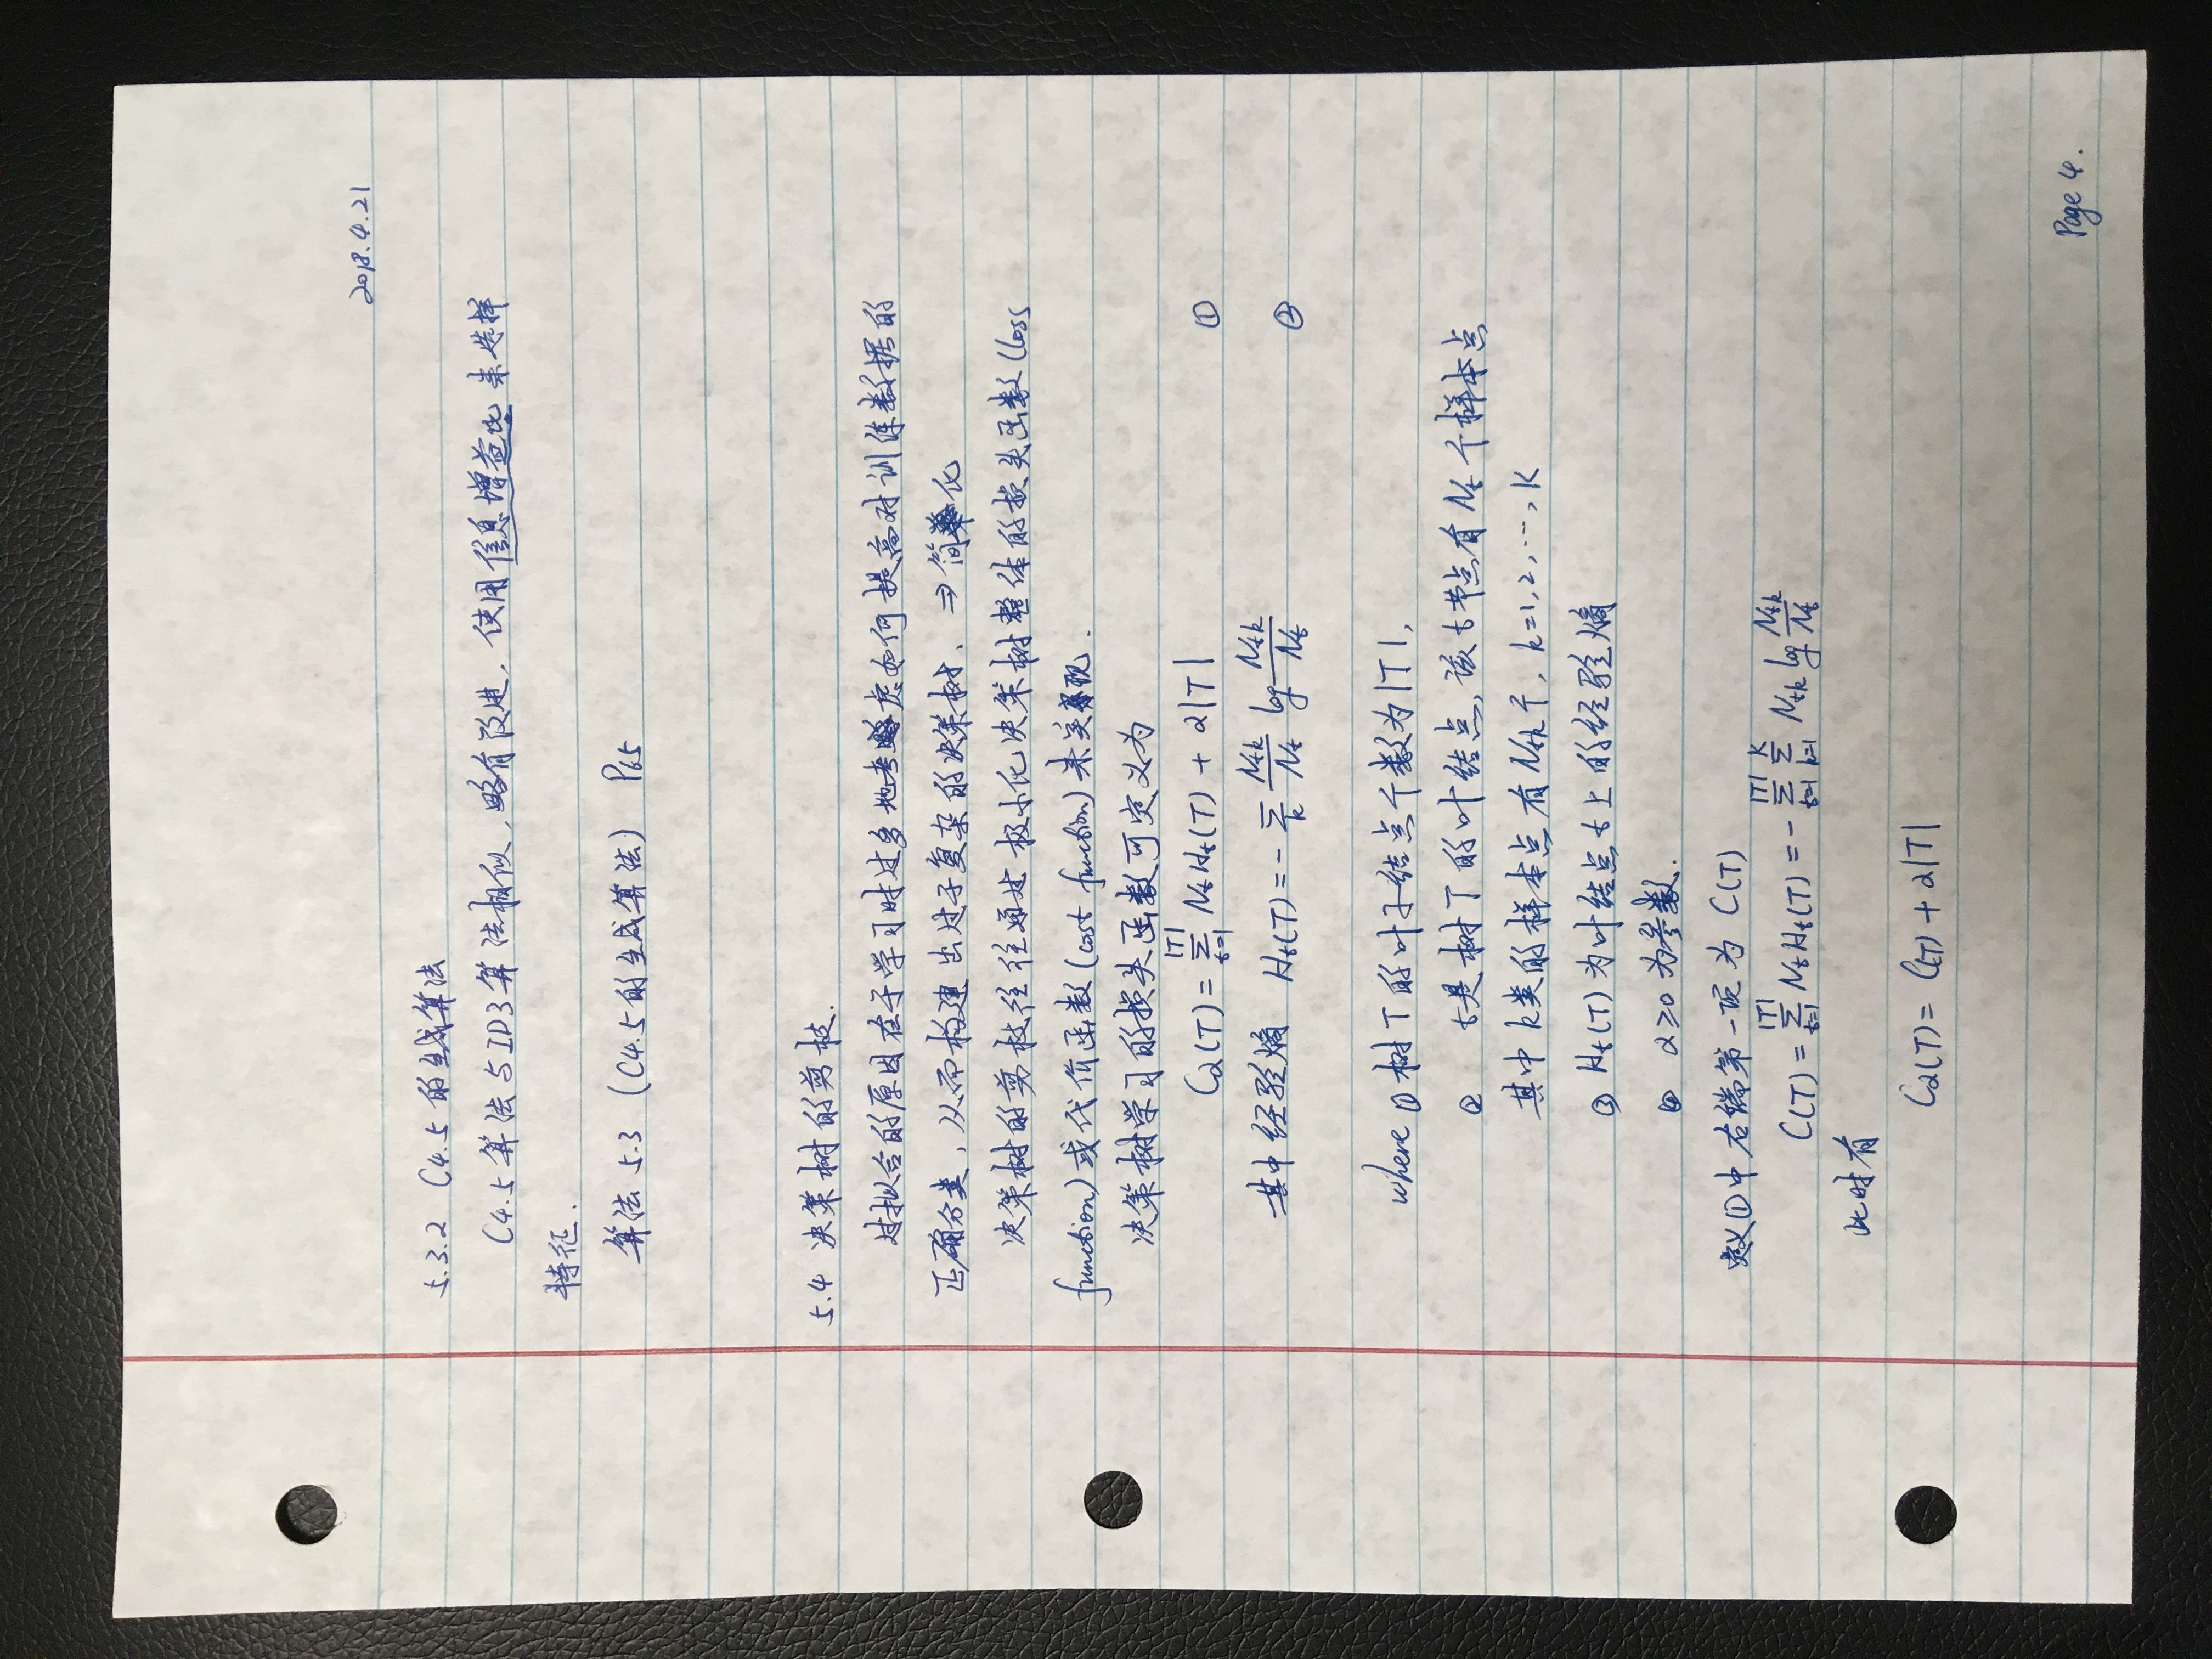 2018.4.21
5.3.2 C4.5的生成算法
C4.5算法与ID3算法相似,略有改进,使用信息增益比来选择
特征.
算法5.3 (C4.5的生成算法) P65
5.4 决策树的剪枝.
过拟合的原因在于学习时过多地考虑如何提高对训练数据的
正确分类,从而构建出过于复杂的决策树. ⇒简化
决策树的剪枝往往通过极小化决策树整体的损失函数(loss
function)或代价函数(cost function)来实现.
决策树学习的损失函数可定义为
Cα(T) = Σ_{t=1}^{|T|} Nt Ht(T) + α|T| ①
其中经验熵 Ht(T) = - Σ_k Ntk/Nt log Ntk/Nt ②
where ① 树T的叶子结点个数为|T|,
② t是树T的叶结点,该t节点有Nt个样本点
其中k类的样本点有Ntk个, k=1,2,…,K
③ Ht(T)为叶结点t上的经验熵
④ α≥0为参数.
定义①中右端第一项为 C(T)
C(T) = Σ_{t=1}^{|T|} Nt Ht(T) = - Σ_{t=1}^{|T|} Σ_{k=1}^{K} Ntk log Ntk/Nt
此时有
Cα(T) = C(T) + α|T|
Page 4.